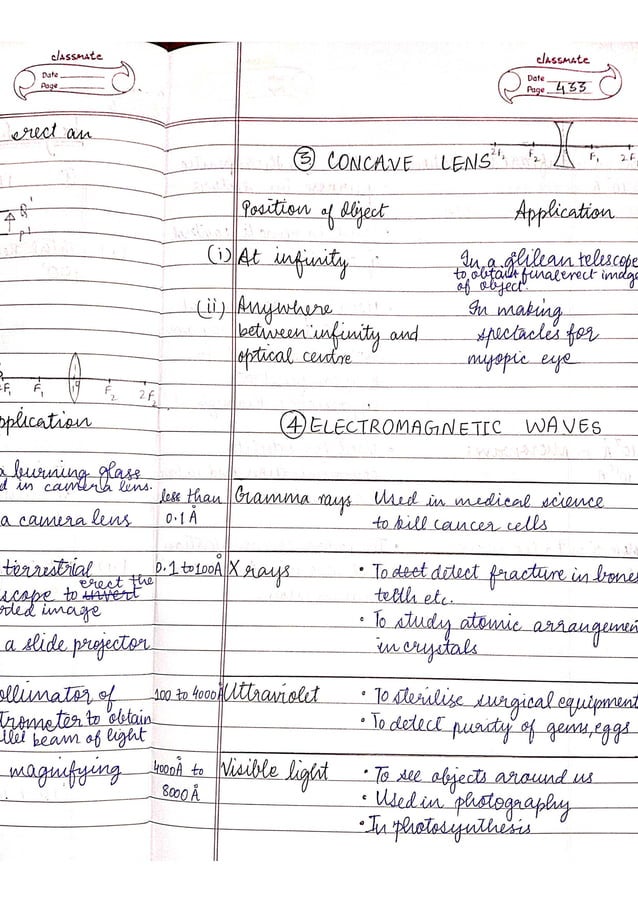 classmate
Date
Page
erect an
R'
P'
F₁
F₁
F₂
2F₂
pplication
a burning glass
d in camera lens.
a camera lens
terrestrial
erect the
scope to invert
rded image
a slide projector
ollimator of
trometer to obtain
llel beam of light
magnifying
classmate
Date
Page 433
③ CONCAVE LENS
2F₂
F₂
F₁
2F
Position of Object Application
(i) At infinity In a glilean telescope
to obtain final erect image
of object.
(ii) Anywhere In making
between infinity and spectacles for
optical centre myopic eye
④ ELECTROMAGNETIC WAVES
less than Gramma rays Used in medical science
0.1 Å to kill cancer cells
0.1 to 100Å X rays • To dect detect fracture in bones
teeth etc.
• To study atomic arrangemen
in crystals
100 to 4000Å Ultraviolet • To sterilise surgical equipment
• To detect purity of gems, eggs
4000Å to Visible light • To see objects around us
8000Å • Used in photography
• In photosynthesis